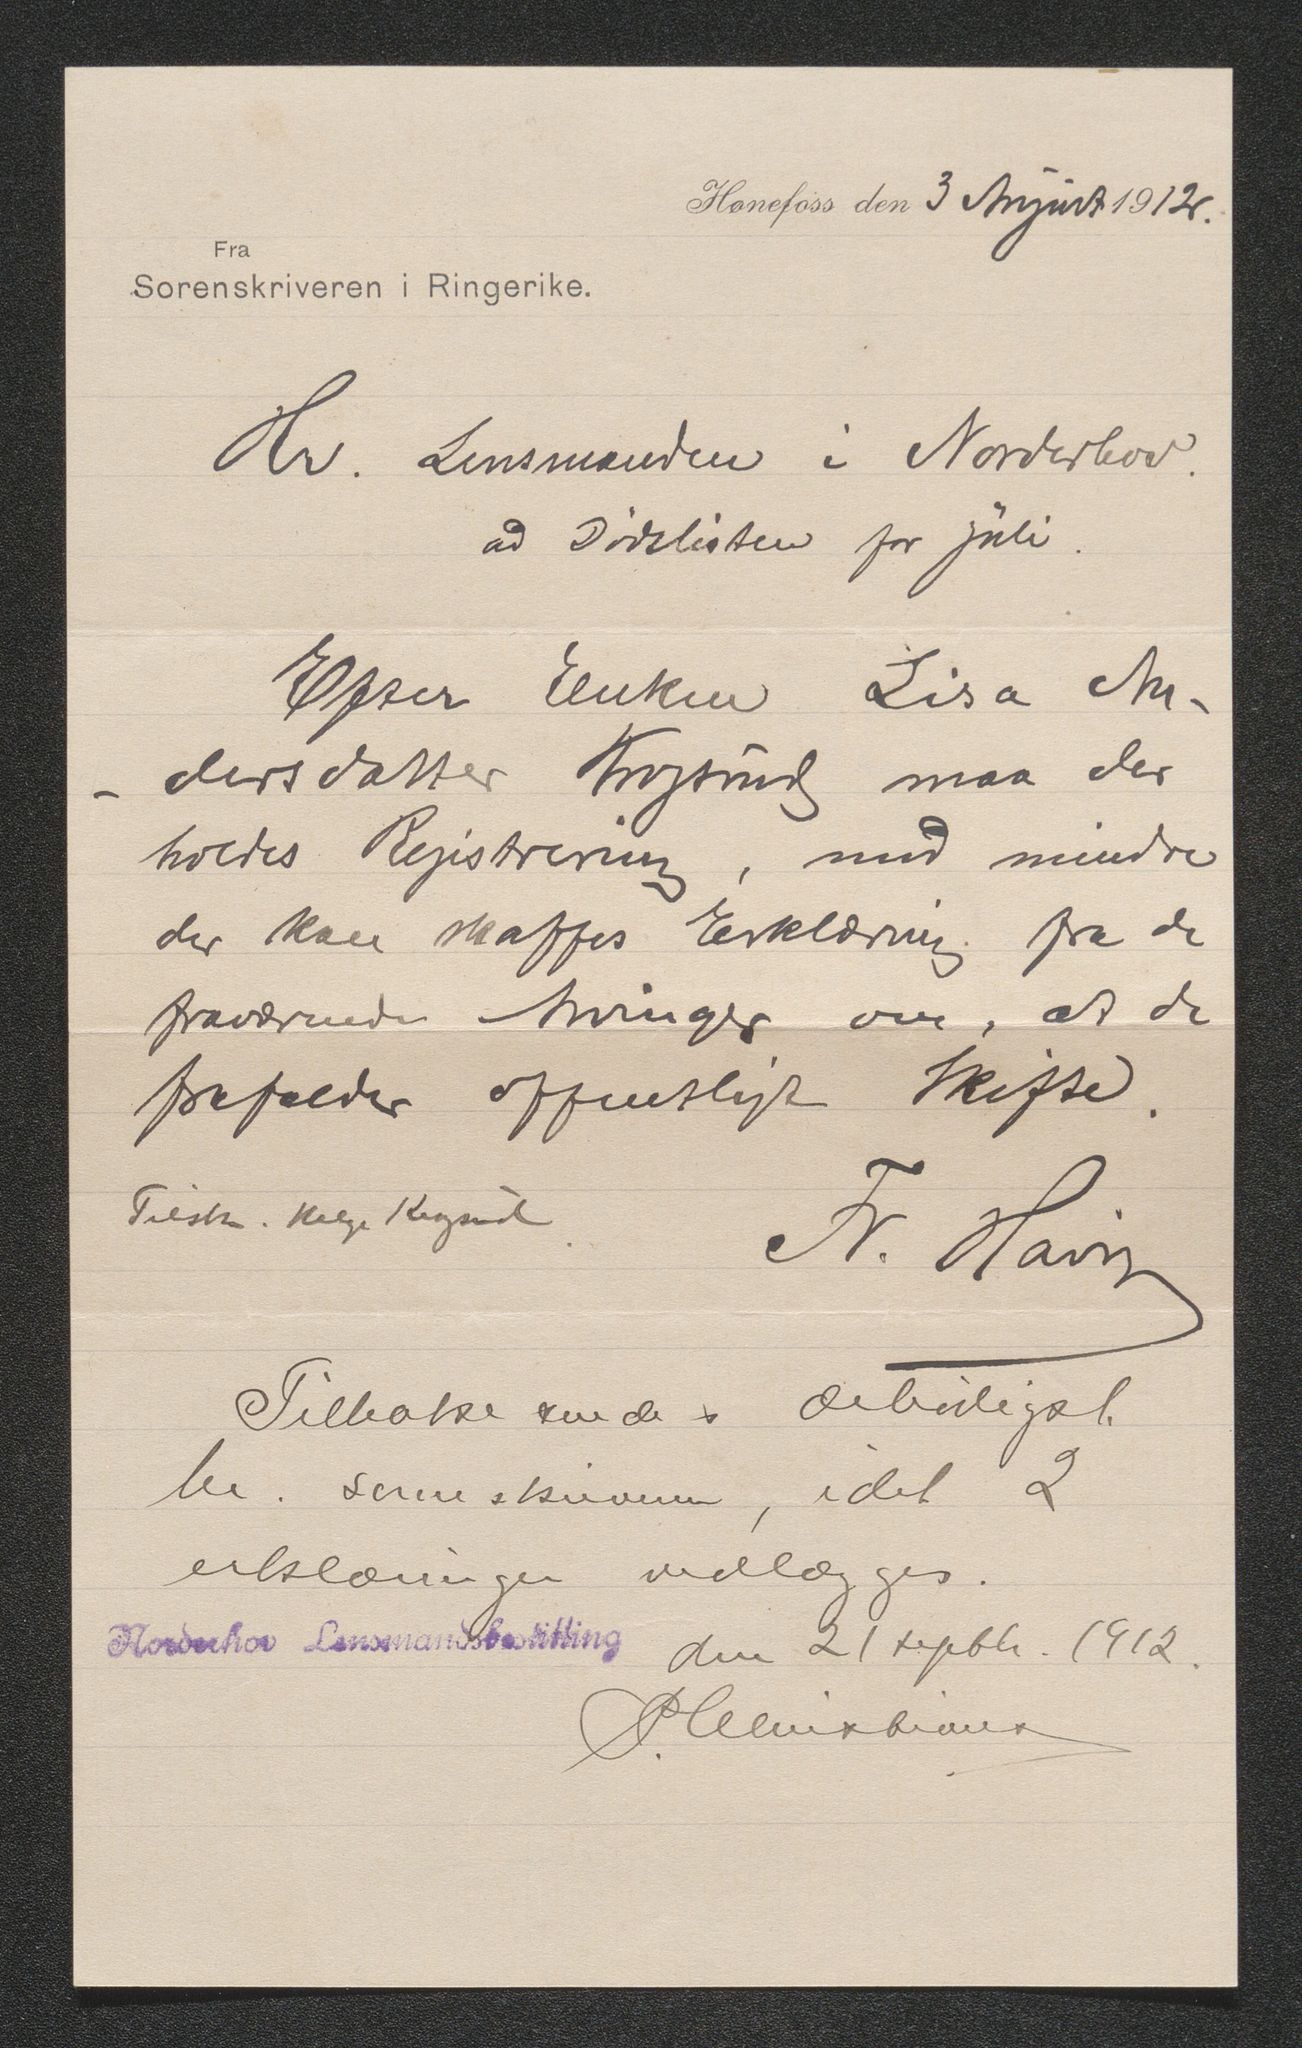 Hønefoss den 3 August 1912.
Fra
Sorenskriveren i Ringerike.
Hr. Lensmanden i Norderhov.
ad Dødslisten for juli.
Efter Enken Lisa An-
-dersdatter Krogsund maa der
holdes Registrering, med mindre
der kan skaffes Erklæring fra de
fraværende Arvinger om, at de
frafalder offentligt Skifte.
Tilsk. Helge Krogsund
Fr. Havig
Tilbakesendes ærbødigst
hr. sorenskriveren, idet 2
erklæringer vedlægges.
Norderhov Lensmandsbestilling den 21 septbr. 1912.
P. Christians